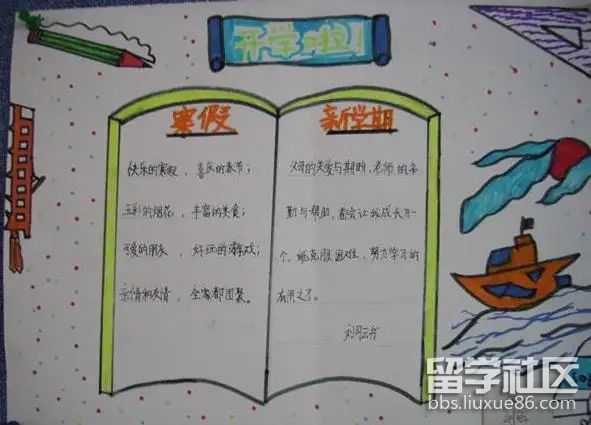 开学啦!
寒假
快乐的寒假、喜庆的春节;
五彩的烟花、丰富的美食;
可爱的朋友、好玩的游戏;
亲情和友情、全家都团聚。
新学期
父母的关爱与期盼,老师的辛
勤与帮助,都会让我成长为一
个能克服困难,努力学习的
有用之才。
留学社区
bbs.liuxue86.com